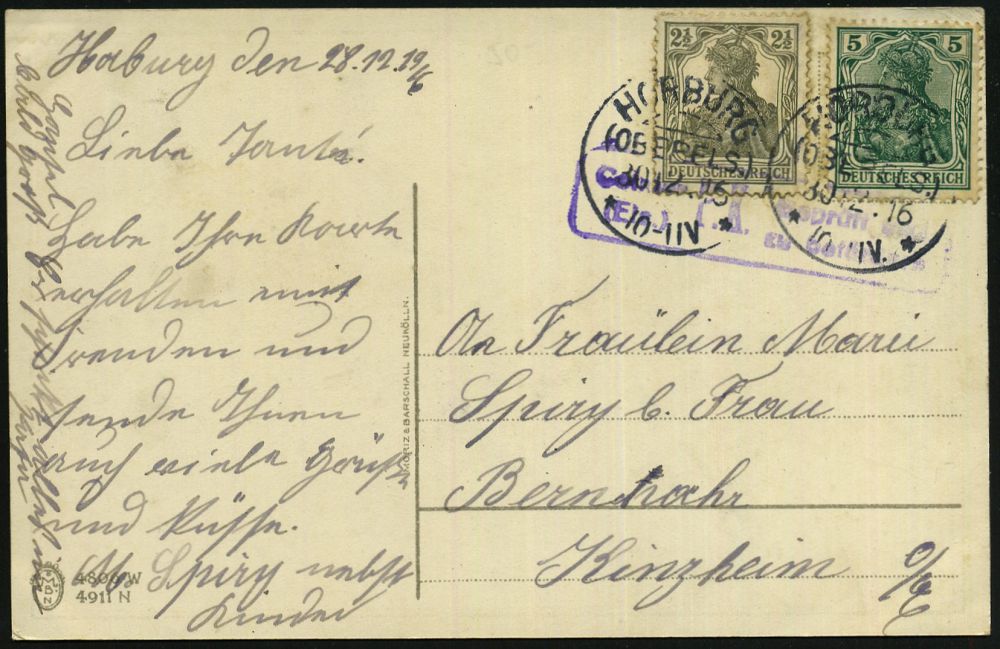 Horburg den 28.12.1916
Liebe Tante.
Habe Ihre Karte
erhalten mit
Freuden und
sende Ihnen
auch viele Grüße
und Küsse.
M. Spiry nebst
Kinder
4806/W
4911 N
MORIZ & BARSCHALL NEUKÖLLN.
2½ 2½
DEUTSCHES REICH
5 5
DEUTSCHES REICH
HORBURG
(OBERELS.)
30.12.16
* 10-11V. *
HORBURG
(OBERELS.)
30.12.16
* 10-11V. *
(Els.)
An Fräulein Marie
Spiry b. Frau
Bernhahr
Kinzheim O/E